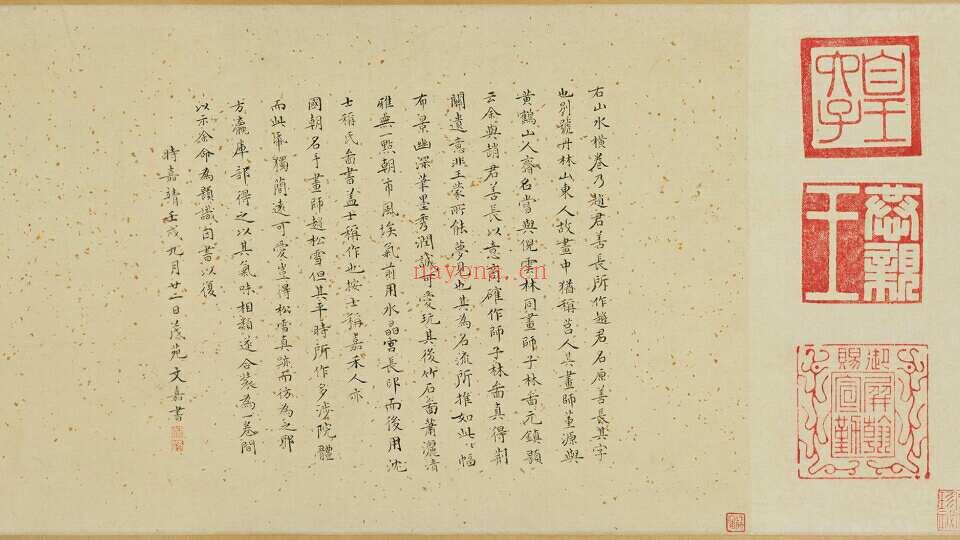 右山水橫卷乃趙君善長所作趙君名原善長其字
也別號丹林山東人故畫中猶稱莒人其畫師董源與
黃鶴山人齊名嘗與倪雲林同畫師子林啚元鎮題
云余與趙君善長以意商確作師子林啚真得荊
關遺意非王蒙所能夢見也其為名流所推如此此幅
布景幽深筆墨秀潤誠可愛玩其後竹石啚蕭灑清
雅無一點朝市風埃氣前用水晶宮長印而後用沈
士稱氏啚書蓋士稱作也按士稱嘉禾人亦
國朝名手畫師趙松雪但其平時所作多涉院體
而此幅獨簡遠可愛豈得松雪真跡而仿為之邪
方瀛庫部得之以其氣味相類遂合裝為一卷間
以示余命為題識因書以復
時嘉靖壬戌九月廿二日茂苑文嘉書
皇六子
恭親王
御賜屏翰宣勤
nayona.cn